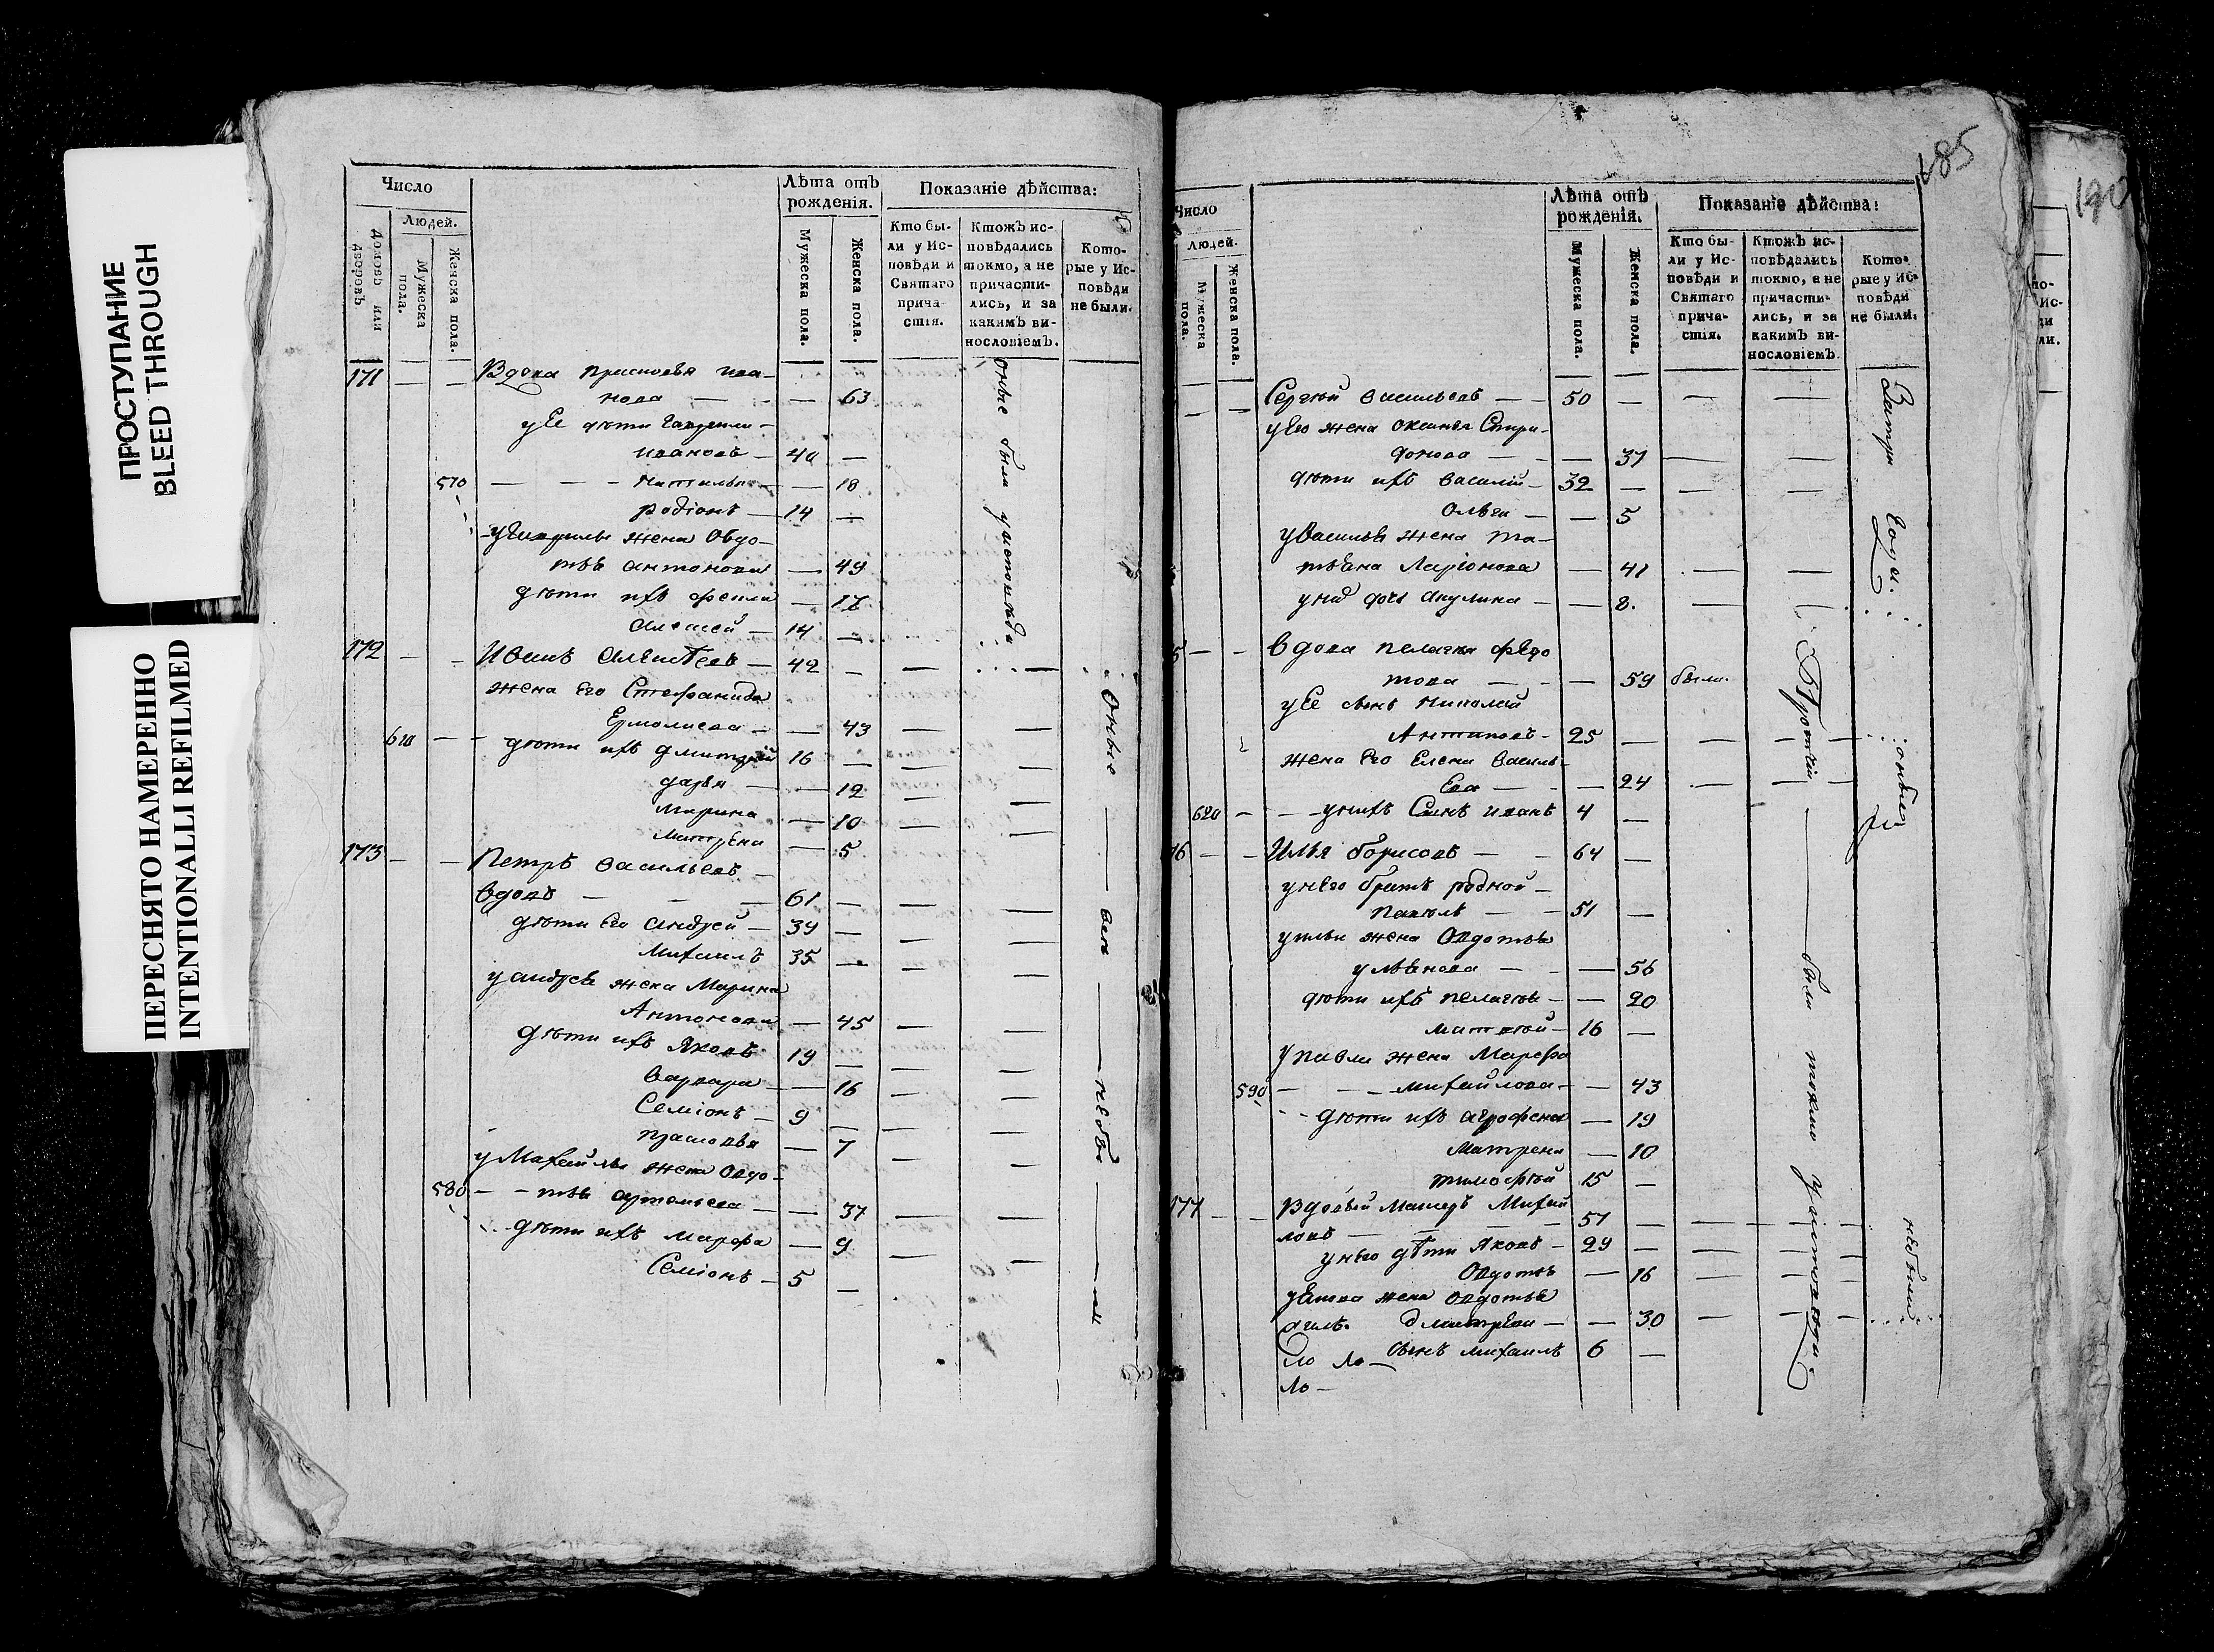 ПРОСТУПАНИЕ
BLEED THROUGH
ПЕРЕСНЯТО НАМЕРЕННО
INTENTIONALLI REFILMED
Число
Людей.
Домовъ или дворовъ
Мужеска пола.
Женска пола.
Лѣта отъ рожденія.
Мужеска пола.
Женска пола.
Показаніе дѣйства:
Кто бы-
ли у Ис-
повѣди и
Святаго
прича-
стія.
Ктожъ ис-
повѣдались
токмо, а не
причасти-
лись, и за
какимъ ви-
нословіемъ.
Кото-
рые у Ис-
повѣди
не были.
171 — — Вдова Прасковья Ива-
нова — — 63
у Ее дѣти Гаврила
Ивановъ — 40 —
570 — — — Наталья — — 18
Родіонъ — 14 —
у Гаврилы жена Овдо-
тья Антонова — 49
дѣти ихъ Фекла — 17
Алексей — 14 —
оные были у исповѣди
172 — — Иванъ Алексѣевъ — 42 — — —
жена Его Стефанида
Ермолаева — — 43 — —
610 — — дѣти ихъ Дмитрій 16 — — —
Дарья — — 12 — —
Марина — 10 — —
Матрена — 5
173 — — Петръ Васильевъ —
вдовъ — — — 61 — — —
дѣти Его Андрей — 39 — — —
Михаилъ 35 — — —
у Андрея жена Марина
Антонова — 45 — —
дѣти ихъ Яковъ 19 — — —
Варвара — — 16 — —
Семіонъ — 9 — — —
Прасковья — 7 — —
у Михайлы жена Овдо-
580 — — тья — — 37 — —
дѣти ихъ Марфа — 9 — —
Семіонъ — 5 —
Оные — все — небы — ли
685
190
Число
Людей.
Мужеска пола.
Женска пола.
Лѣта отъ рожденія.
Мужеска пола.
Женска пола.
Показаніе дѣйства:
Кто бы-
ли у Ис-
повѣди и
Святаго
прича-
стія.
Ктожъ ис-
повѣдались
токмо, а не
причасти-
лись, и за
какимъ ви-
нословіемъ.
Кото-
рые у Ис-
повѣди
не были.
— — Сергѣй Васильевъ — — 50 — — —
у Его жена Оксинья Спири-
донова — — — 37 — —
дѣти ихъ Василій — 32 — — —
Ольга — — 5
у Василья жена Та-
тьяна Ларіонова — 41 — —
у нихъ дочь Акулина — — 8. —
5 — — вдова Пелагея Федо
това — — — 59 была.
у Ее сынъ Николай
Антиповъ — 25 — — — —
жена Его Елена Василь-
Ева — — — 24 — —
620 — — у нихъ Сынъ Иванъ 4 —
76 — — Илья Борисовъ — — 64 —
у него братъ родной —
Павелъ — — 51 —
у Ильи жена Овдотья
Ульянова — — — 56
дѣти ихъ Пелагея — — 20
Матвѣй — 16 —
у Павла жена Марфа
590 — — Михайлова — — 43
дѣти ихъ Агрофена — 19
Матрена — 10
Тимофей 15 —
были токмо у исповѣди
177 — — Вдовый Михай
ловъ — — — 57 — — — —
у него дѣти Яковъ — 29 — — — —
Овдотья — 16 — — —
у Якова жена Овдотья
Дмитрева — — 30 — — —
сынъ Михаилъ 6 —
ло ло —
ло —
оные
небыли